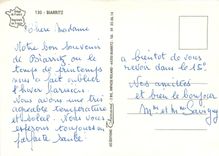 130 - BIARRITZ
Chère Madame
Notre bon souvenir
de Biarritz ou le
temps de printemps
nous a fait oublier
l'hiver parisien.
nous avons une très
agréable température
et soleil. Nous vous
espérons toujours en
parfaite santé.
a bientôt de vous
revoir dans le 15e
Nos amitiés
et bien le bonjour
Mme et Mr